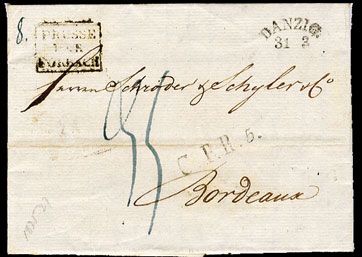 8.
PRUSSE
PAR
FORBACH
DANZIG
31 3
Herren Schröder & Schyler & Co
C.P.R.5.
Bordeaux